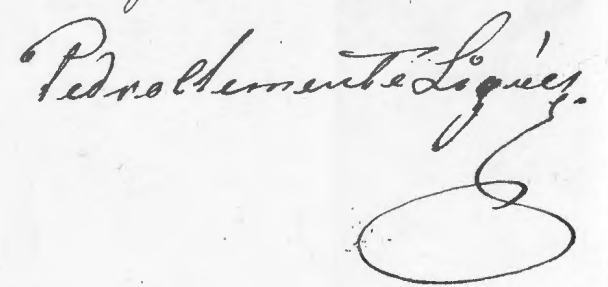 Pedro Clemente Ligués